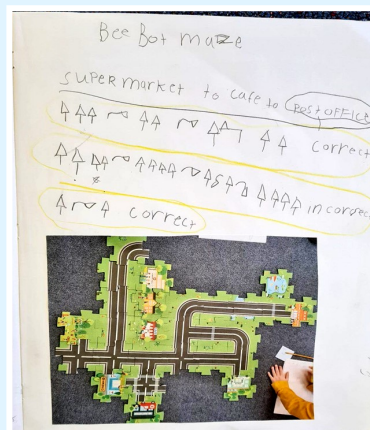 Bee Bot maze
SUPERmarket to cafe to POSt OFFICE
↑↑↑ ↷ ↑↑ ↷ ↑↱ ↑↑ correct
incorrect
↑ ↷ ↑ correct